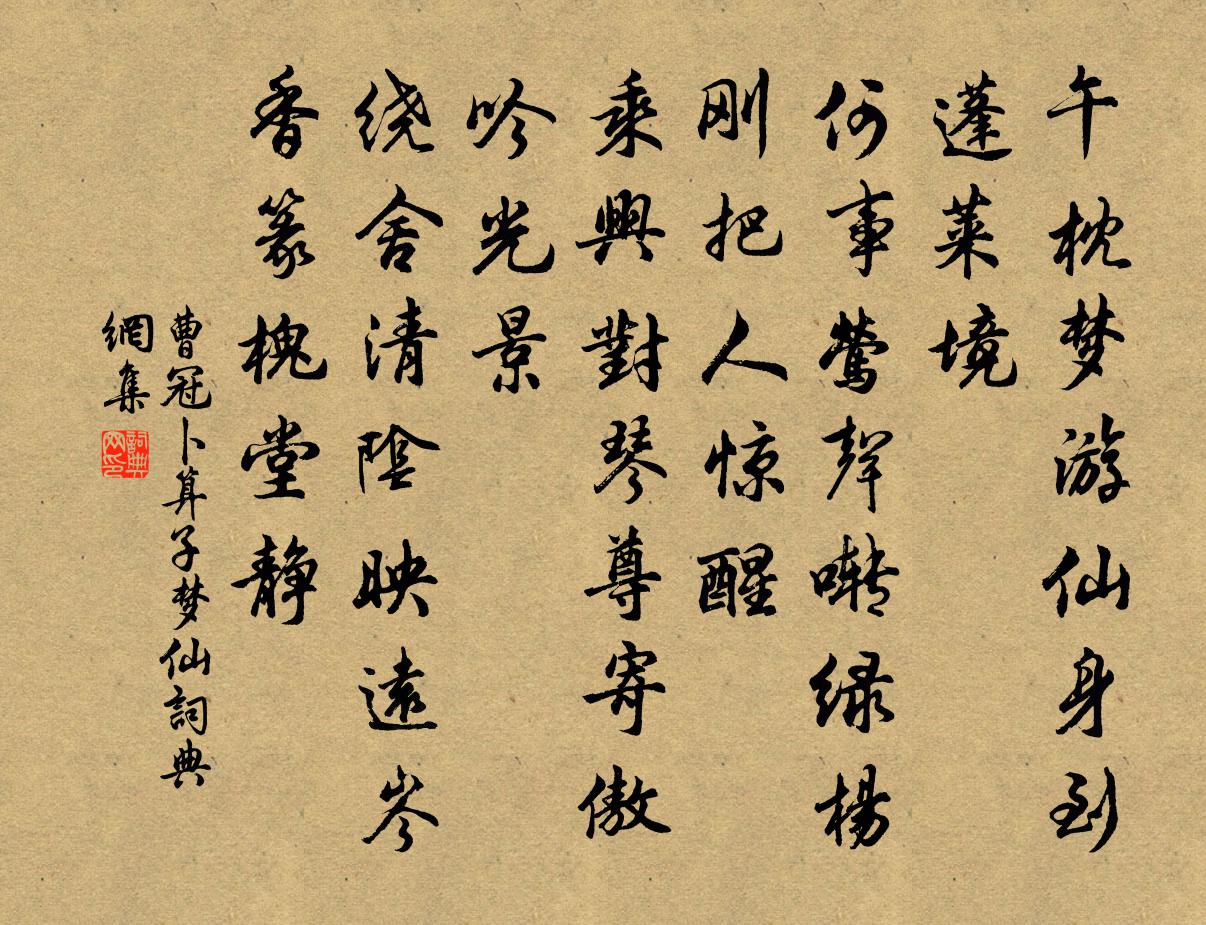 午枕梦游仙身到
蓬莱境
何事莺聲啭绿楊
刚把人惊醒
乘興對琴尊寄傲
吟光景
绕舍清陰映遠岑
香篆槐堂静
曹冠卜算子梦仙詞典
網集
詞典
网印